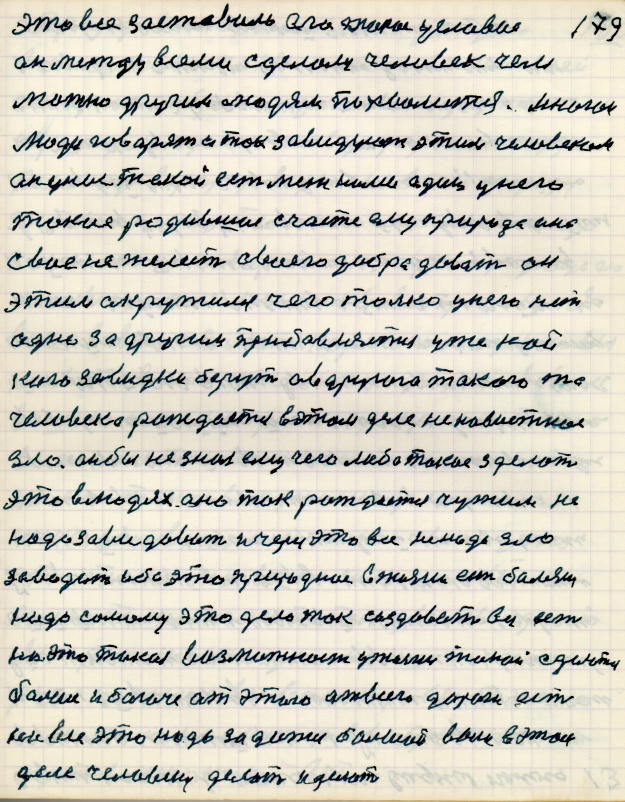 это все заставило его такое целовое 179
он между всеми сделолц человек чем
можно другим людям похволится. многои
люди говорят и так завидуют этим человеком
он у нас такой ест меж ними один у него
токие родившие счасте ему природа она
свае не жалеит своего добра доват он
этим окружился чего толко у него нет
одно за другим прибовляится уже кой
кого завидки берут а в другога такого то
человека рождается в этом деле ненавистное
зло. он бы не знал ему чего либо такое зделот
это в людях оно так рождается чужим не
нада завидоват и через это все не нада зло
заводит ибо это природное в жизни ест болезн
надо самому это дело так создоват ви ест
на это такая возможност у жизни такой сделится
более и богаче от этого от всего дорого ест
на все это надо задержи болшой воли в этом
деле человеку делат и делат